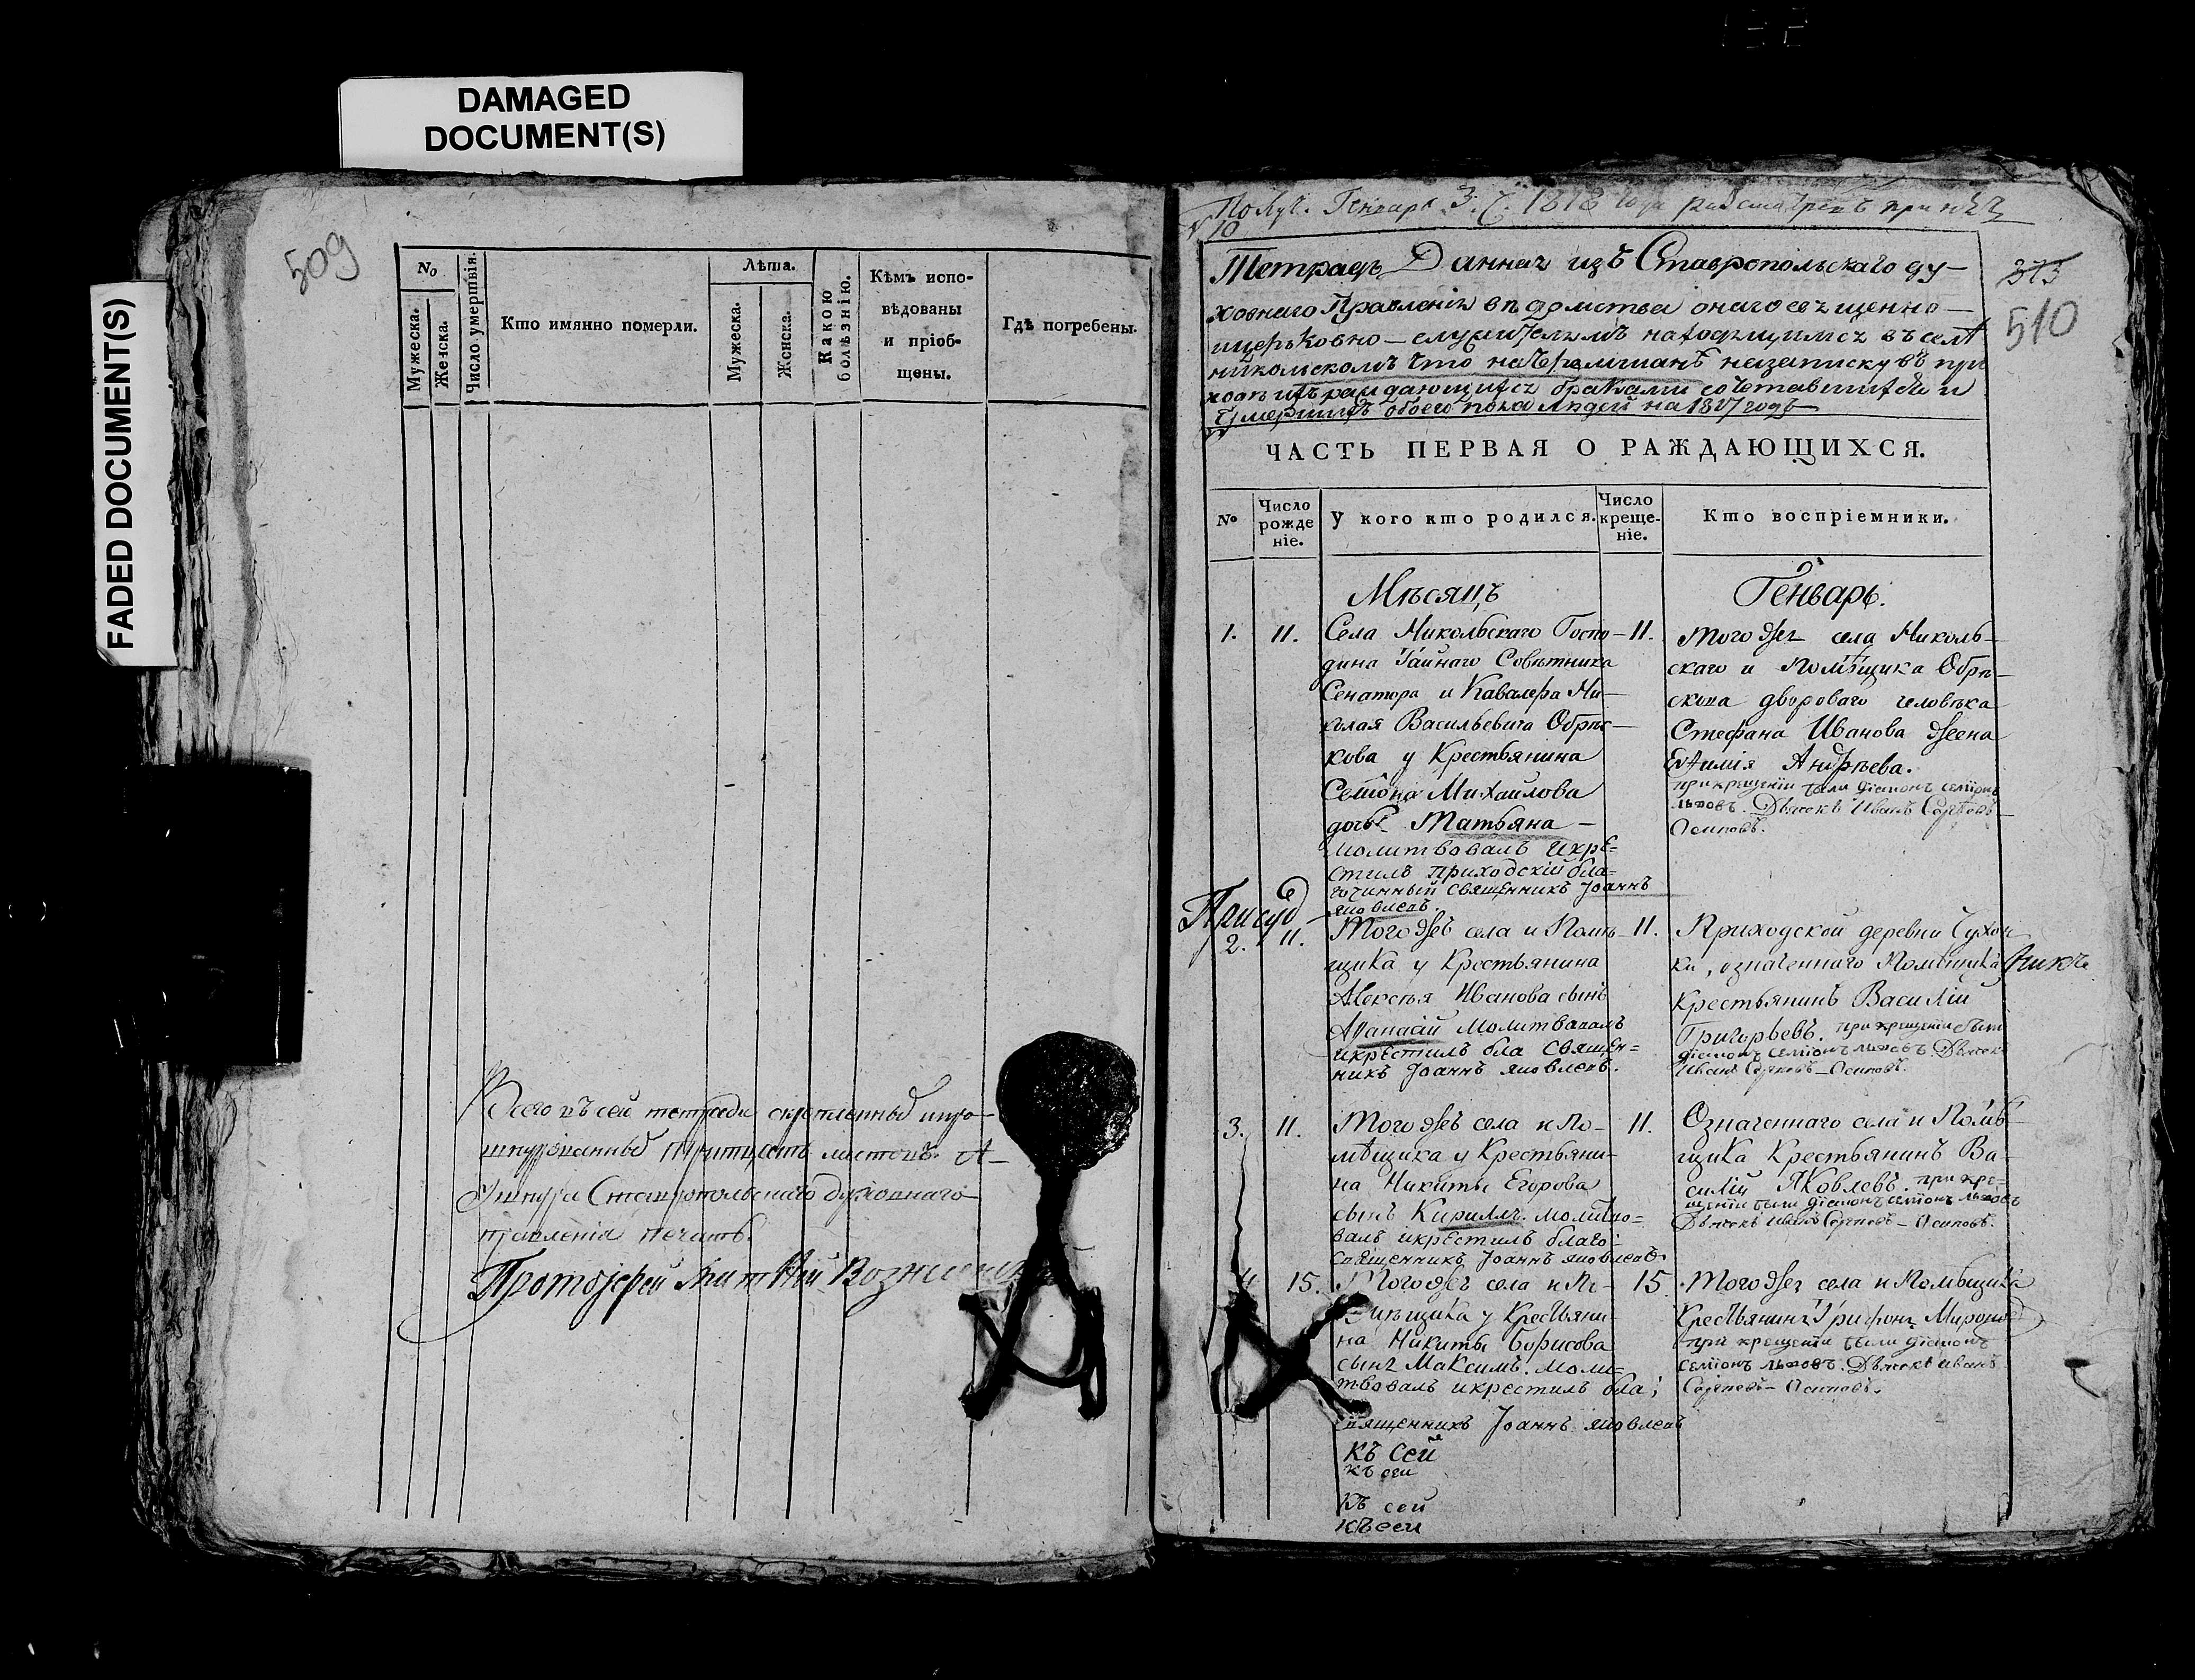 DAMAGED
DOCUMENT(S)
FADED DOCUMENT(S)
509
№
Мужеска.
Женска.
Число умертвія.
Кто имянно померли.
Лѣта.
Мужеска.
Женска.
Какою
болѣзнію.
Кѣмъ испо-
вѣдованы
и пріоб-
щены.
Гдѣ погребены.
Всего въ сей тетради скрепленныхъ и про-
шнурованныхъ тритцать листовъ. А
у шнура Ставропольскаго духовнаго
правленія печать.
Протоіерей
Получ. Генваря 3. 1818 года
10
Тетрадь Данная изъ Ставропольскаго ду-
ховнаго Правленія вѣдомства онаго священно-
церьковно-служителямъ находящимся въ селѣ
никольскомъ что на Черемшанѣ на записку въ при
ходѣ ихъ раждающихся браками сочетавшихся и
умершихъ обоего пола людей на 1817 годъ
373
510
ЧАСТЬ ПЕРВАЯ О РАЖДАЮЩИХСЯ.
№
Число
рожде
ніе.
У кого кто родился.
Число
креще-
ніе.
Кто воспріемники.
Мѣсяцъ Генварь.
1. 11. Села Никольскаго Госпо- 11.
дина Тайнаго Совѣтника
Сенатора и Кавалера Ни-
колая Васильевича Обрѣс-
кова у Крестьянина
Семіона Михаилова
дочь Татьяна -
молитвовалъ и кре-
стилъ приходскій бла-
гочинный священникъ Іоаннъ
яковлевъ.
Того же села Николь-
скаго и Помѣщика Обрѣ-
скова двороваго человѣка
Стефана Иванова жена
Евфимія Андрѣева.
при крещеніи были діаконъ семіонъ
львовъ. Дьячекъ Иванъ Сергѣевъ -
Осиповъ.
2. 11. Того жъ села и Помѣ- 11.
щика у Крестьянина
Алексѣя Иванова сынъ
Афанасій молитвовалъ
и крестилъ бла священ=
никъ Іоаннъ яковлевъ.
Приходской деревни
ки, означеннаго Помѣщика
Крестьянинъ Василій
Григорьевъ. при крещеніи были
діаконъ семіонъ львовъ. Дьячек
Иванъ Сергѣевъ - Осиповъ.
3. 11. Того жъ села и По- 11.
мѣщика у Крестьяни-
на Никиты Егорова
сынъ Кириллъ. молитво=
валъ и крестилъ благо:
священникъ Іоаннъ яковлевъ.
Означеннаго села и Помѣ-
щика Крестьянинъ Ва-
силій Яковлевъ. при кре-
щеніи были діаконъ семіонъ львовъ
Дьячекъ Иванъ Сергѣевъ - Осиповъ.
4. 15. Того жъ села и По- 15.
мѣщика у Крестьяни-
на Никиты Борисова
сынъ Максимъ. моли=
твовалъ и крестилъ бла:
священникъ Іоаннъ яковлевъ
Того же села и Помѣщика
Крестьянинъ Трифонъ Мироновъ
при крещеніи были діаконъ
семіонъ львовъ. Дьячекъ иванъ
Сергѣевъ - Осиповъ.
къ сей
къ сей
къ сей
къ сей